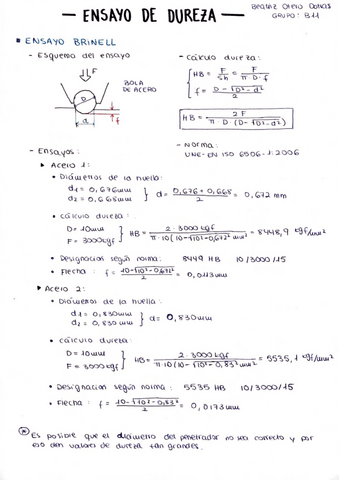 — ENSAYO DE DUREZA —
Beatriz Otero
GRUPO: B11
ENSAYO BRINELL
- Esquema del ensayo
↓F
BOLA
DE ACERO
D
d
f
- Cálculo dureza:
HB = F / Sh = F / π·D·f
f = (D - √D²-d²) / 2
HB = 2F / π·D·(D-√D²-d²)
- Norma:
UNE-EN ISO 6506-1:2006
- Ensayos:
▸ Acero 1:
• Diámetros de la huella:
d1 = 0,676mm
d2 = 0,668mm
d = (0,676+0,668) / 2 = 0,672 mm
• Cálculo dureza:
D=10mm
F = 3000kgf
HB = 2·3000 kgf / π·10(10-√10²-0,672² mm²) = 8448,9 kgf/mm²
• Designación según norma: 8449 HB 10/3000/15
• Flecha: f = (10-√10²-0,672²) / 2 = 0,0113mm
▸ Acero 2:
• Diámetros de la huella:
d1 = 0,830mm
d2 = 0,830mm
d = 0,830mm
• cálculo dureza:
D=10mm
F = 3000kgf
HB = 2·3000kgf / π·10(10-√10²-0,83² mm²) = 5535,1 kgf/mm²
• Designación según norma: 5535 HB 10/3000/15
• Flecha: f = (10-√10²-0,83²) / 2 = 0,0173mm
* Es posible que el diámetro del penetrador no sea correcto y por
eso den valores de dureza tan grandes.